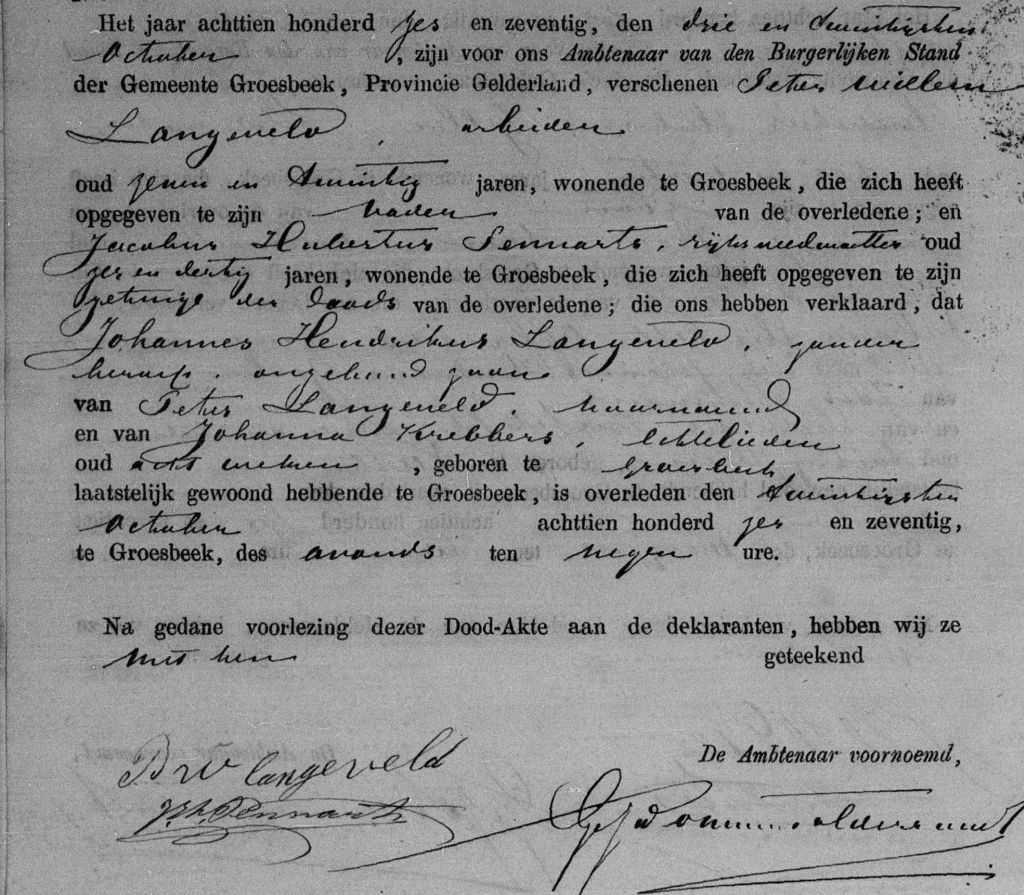 Het jaar achttien honderd zes en zeventig, den drie en twintigsten
October, zijn voor ons Ambtenaar van den Burgerlijken Stand
der Gemeente Groesbeek, Provincie Gelderland, verschenen Peter Willem
Langeveld, arbeider
oud zeven en twintig jaren, wonende te Groesbeek, die zich heeft
opgegeven te zijn vader van de overledene; en
Jacobus Hubertus Pennarts, rijksveldwachter oud
zes en dertig jaren, wonende te Groesbeek, die zich heeft opgegeven te zijn
getuige des doods van de overledene; die ons hebben verklaard, dat
Johannes Hendrikus Langeveld, zonder
beroep, zoon
van Peter Langeveld, voornoemd
en van Johanna Krebbers, echtelieden
oud acht weken, geboren te Groesbeek
laatstelijk gewoond hebbende te Groesbeek, is overleden den twintigsten
October achttien honderd zes en zeventig,
te Groesbeek, des avonds ten negen ure.
Na gedane voorlezing dezer Dood-Akte aan de deklaranten, hebben wij ze
met hen geteekend
De Ambtenaar voornoemd,
P W Langeveld
Pennarts